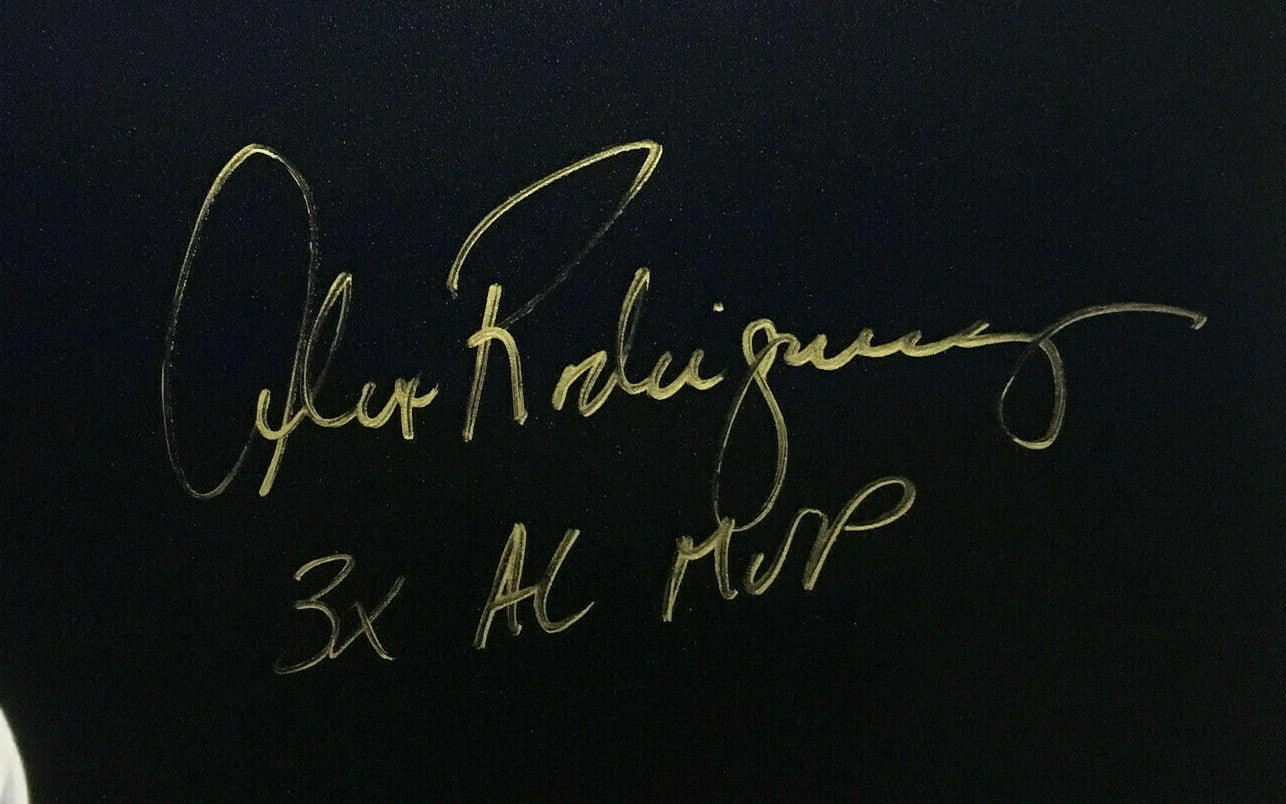 Alex Rodriguez
3x AL MVP